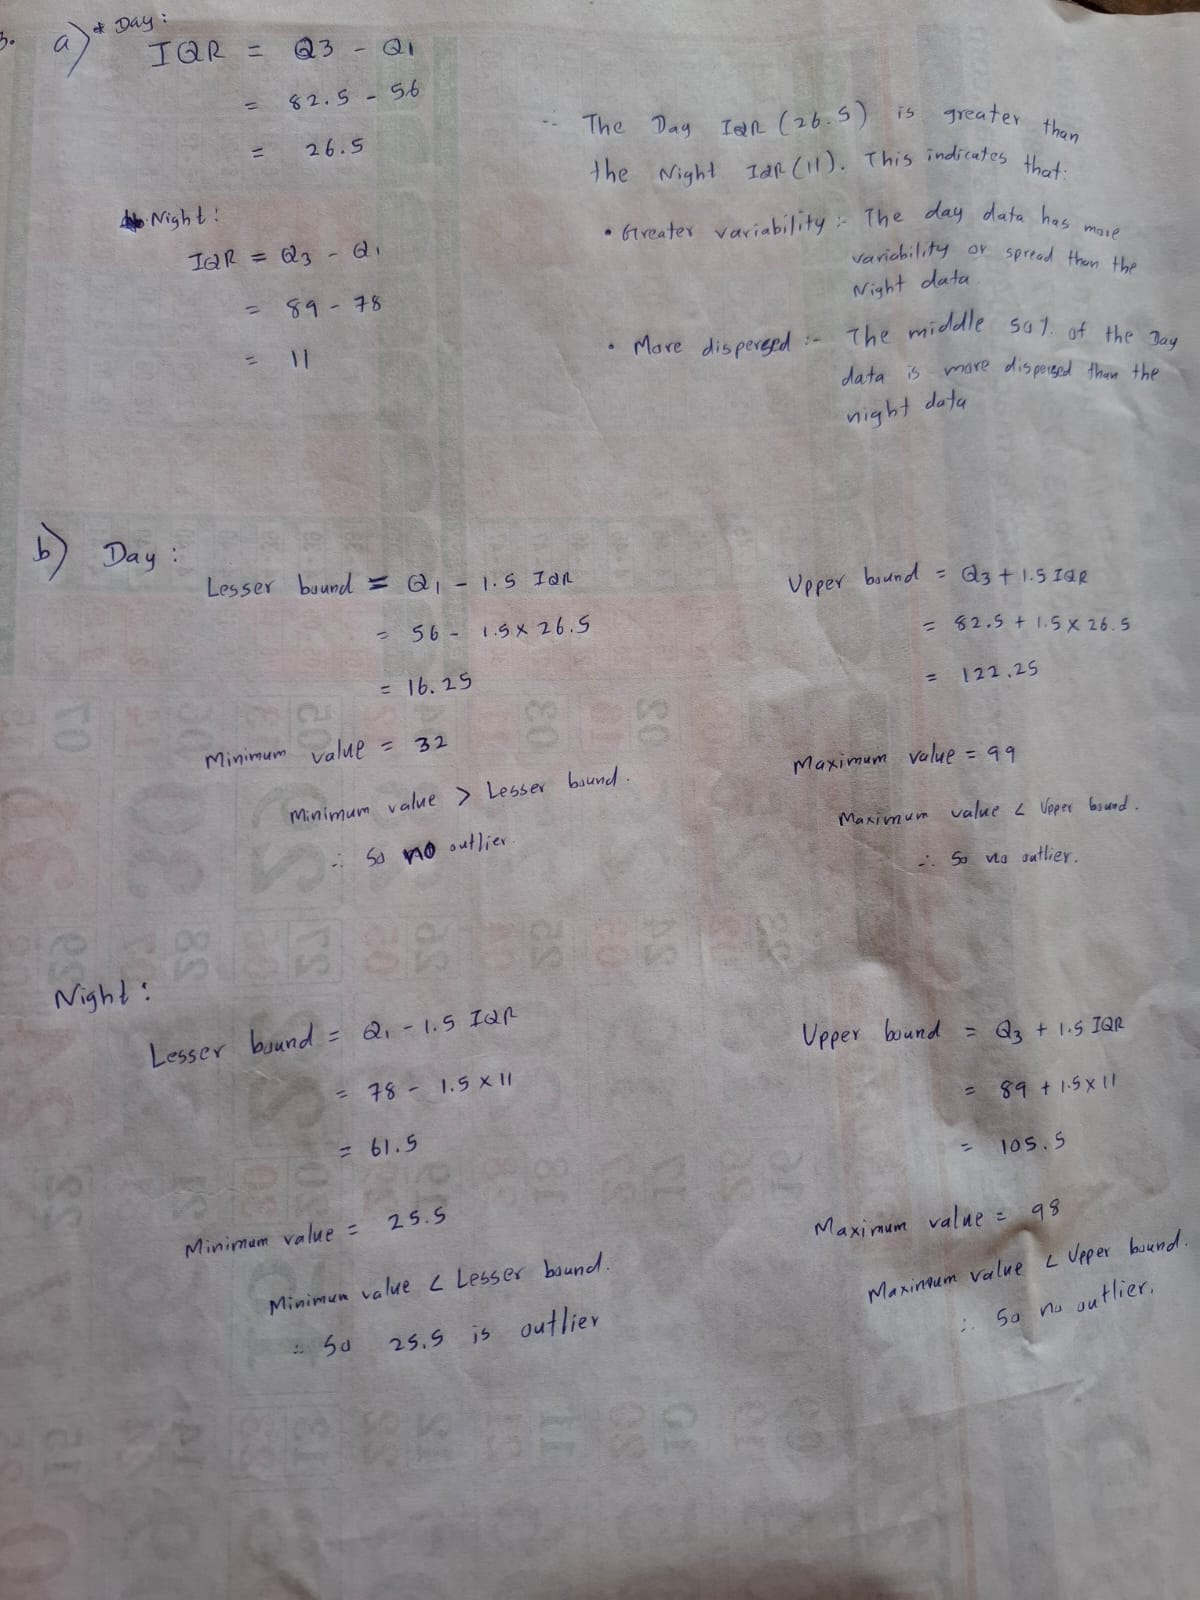 3. a) * Day:
IQR = Q3 - Q1
= 82.5 - 56
= 26.5
Night:
IQR = Q3 - Q1
= 89 - 78
= 11
∴ The Day IQR (26.5) is greater than
the Night IQR (11). This indicates that:
• Greater variability :- The day data has more
variability or spread than the
Night data
• More dispersed :- The middle 50% of the Day
data is more dispersed than the
night data
b) Day:
Lesser bound = Q1 - 1.5 IQR
= 56 - 1.5 x 26.5
= 16.25
Minimum value = 32
Minimum value > Lesser bound.
∴ So no outlier.
Upper bound = Q3 + 1.5 IQR
= 82.5 + 1.5 x 26.5
= 122.25
Maximum value = 99
Maximum value < Upper bound.
∴ So no outlier.
Night:
Lesser bound = Q1 - 1.5 IQR
= 78 - 1.5 x 11
= 61.5
Minimum value = 25.5
Minimum value < Lesser bound.
∴ So 25.5 is outlier
Upper bound = Q3 + 1.5 IQR
= 89 + 1.5 x 11
= 105.5
Maximum value = 98
Maximum value < Upper bound.
∴ So no outlier.